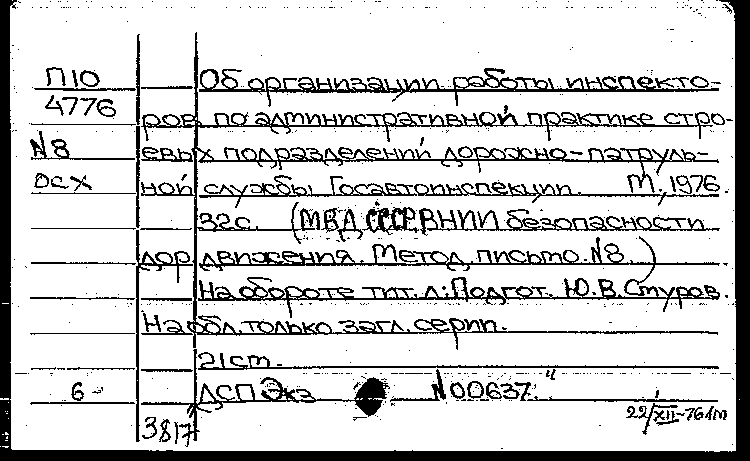 П10 Об организации работы инспекто-
4776 ров по административной практике стро-
N8 евых подразделений дорожно-патруль-
осх ной службы Госавтоинспекции. М., 1976.
32с. (МВД СССР ВНИИ безопасности
дор. движения. Метод. письмо. N8.)
На обороте тит. л: Подгот. Ю.В. Стуров.
На обл. только загл. серии.
21см.
6- ДСП Экз N00637."
3817 22/XII-76